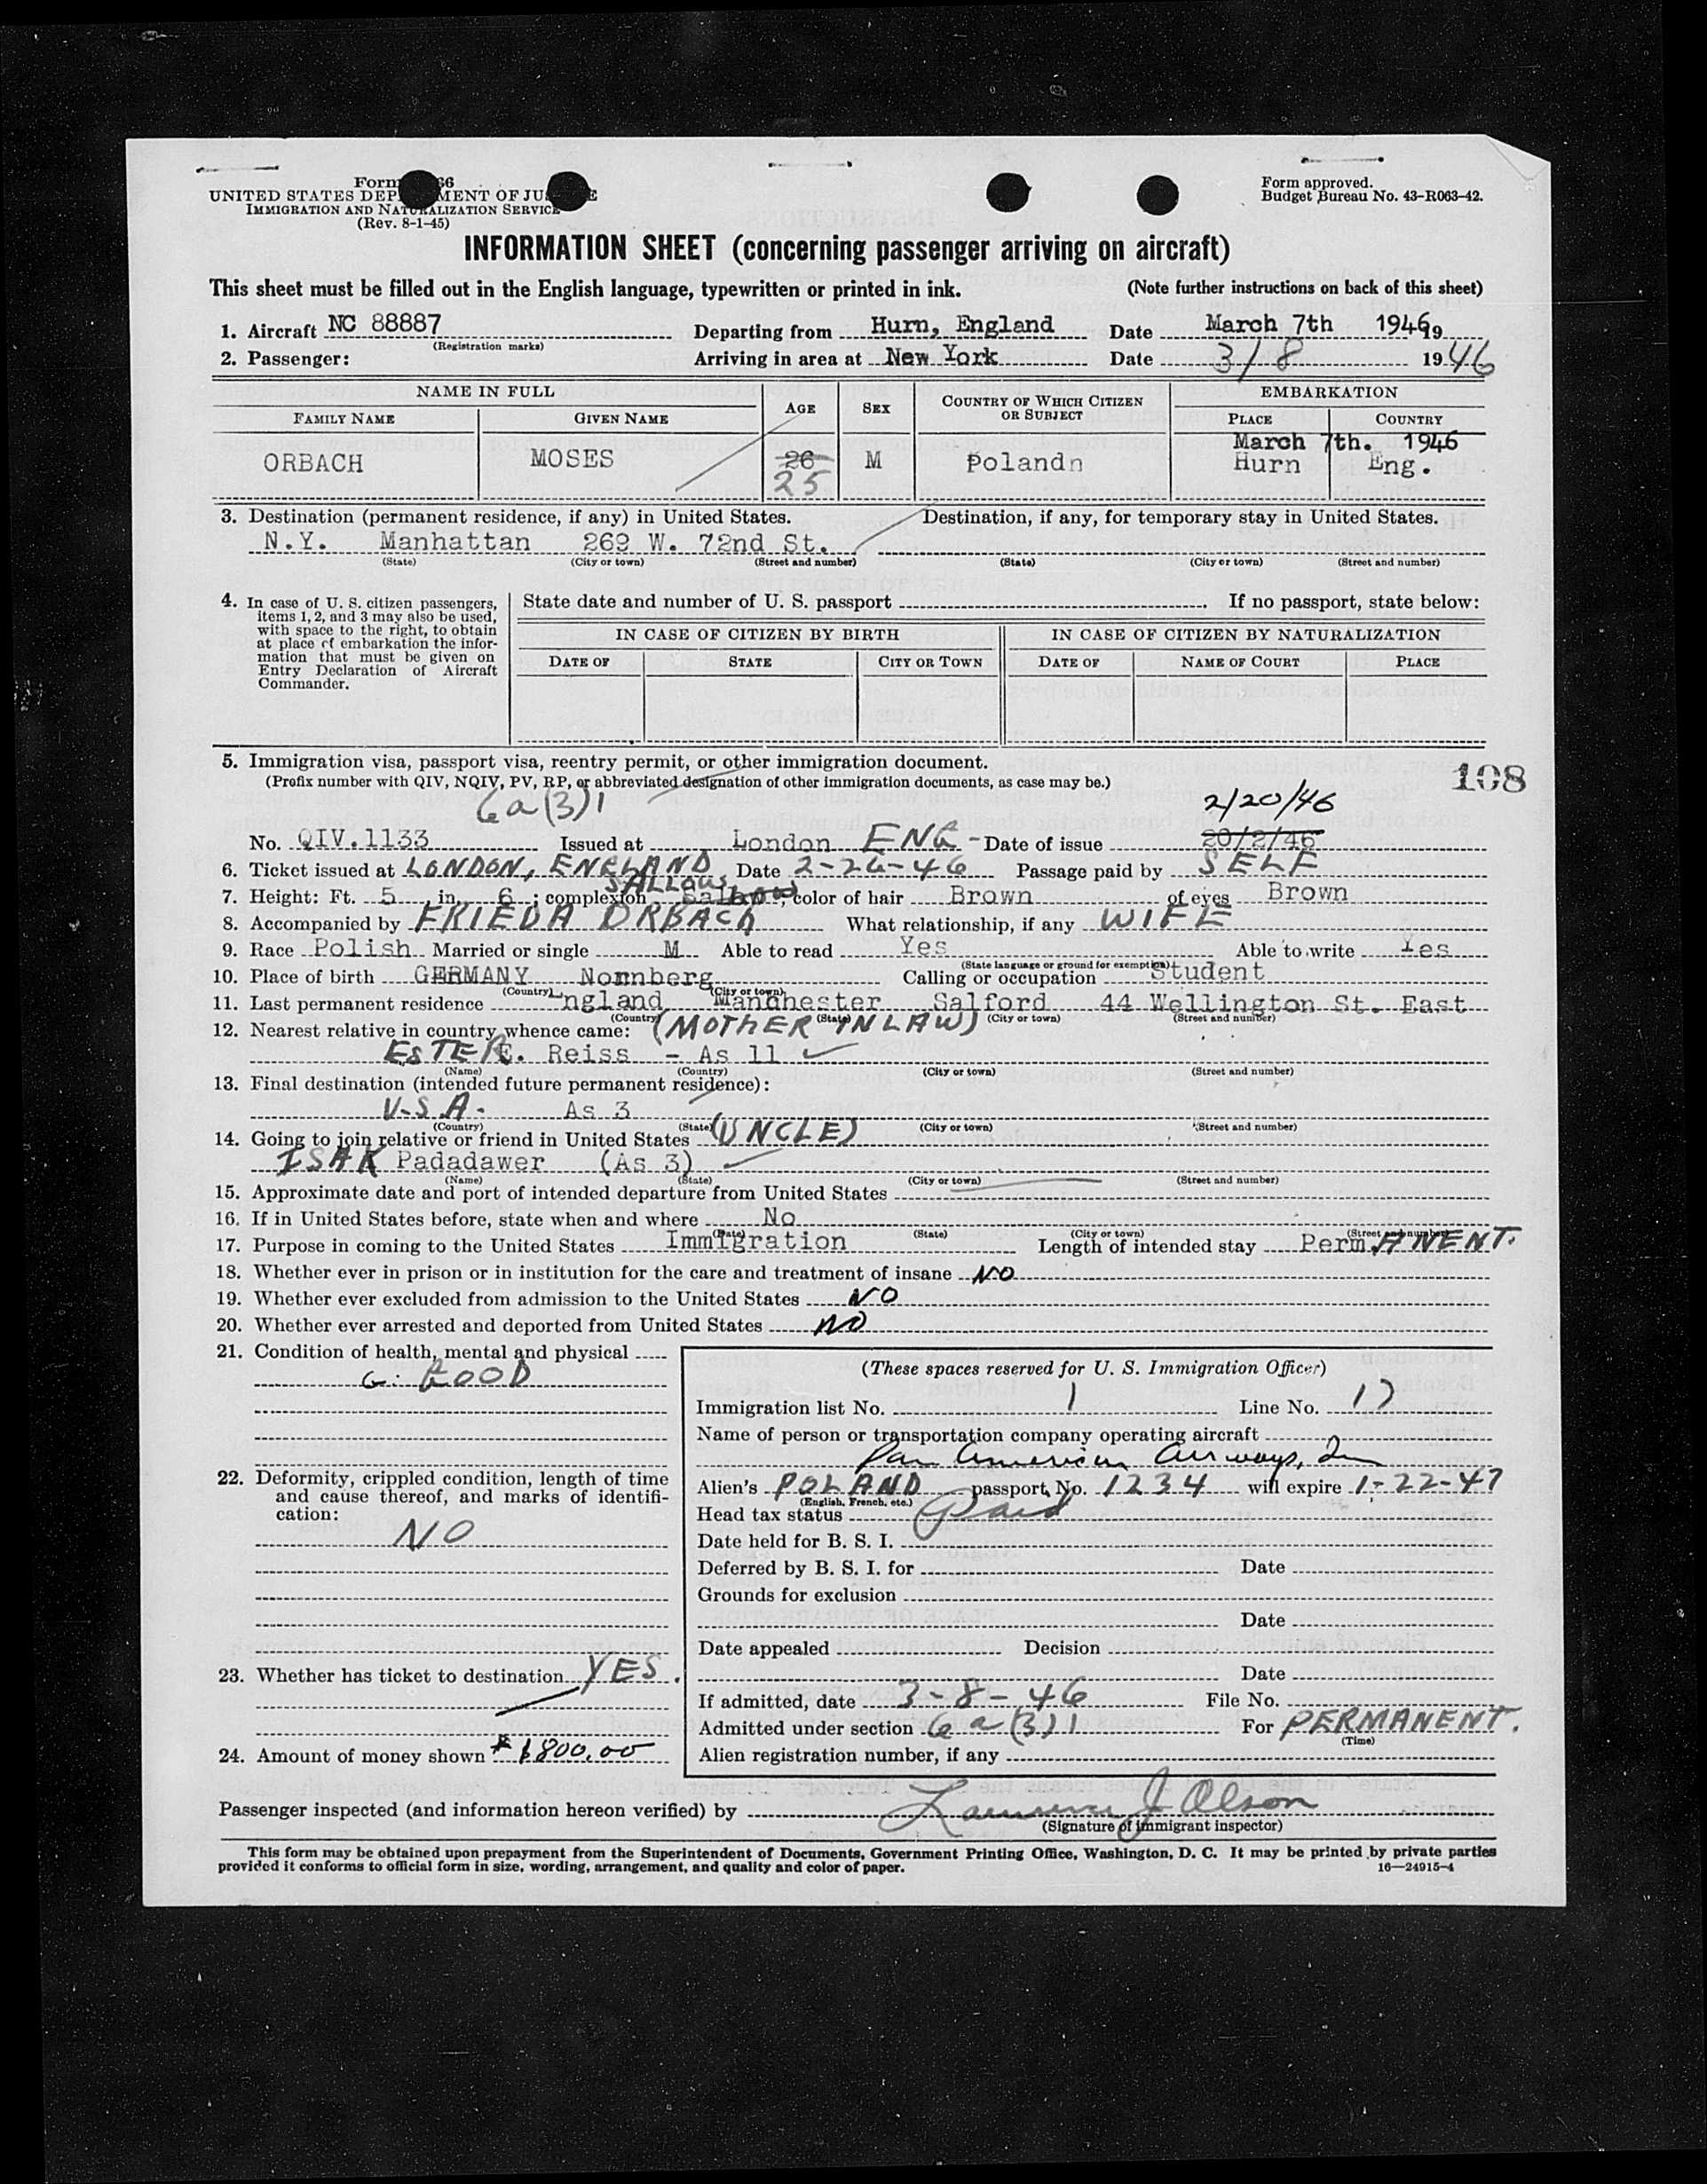 Form 66
UNITED STATES DEP MENT OF JU E
IMMIGRATION AND NATURALIZATION SERVICE
(Rev. 8-1-45)
Form approved.
Budget Bureau No. 43-R063-42.
INFORMATION SHEET (concerning passenger arriving on aircraft)
This sheet must be filled out in the English language, typewritten or printed in ink. (Note further instructions on back of this sheet)
1. Aircraft NC 88887 Departing from Hurn, England Date March 7th 1946 19
(Registration marks)
2. Passenger: Arriving in area at New York Date 3/8 1946
NAME IN FULL AGE SEX COUNTRY OF WHICH CITIZEN OR SUBJECT EMBARKATION
FAMILY NAME GIVEN NAME PLACE COUNTRY
March 7th. 1946
ORBACH MOSES 26 M Polandn Hurn Eng.
25
3. Destination (permanent residence, if any) in United States. Destination, if any, for temporary stay in United States.
N.Y. Manhattan 269 W. 72nd St.
(State) (City or town) (Street and number) (State) (City or town) (Street and number)
4. In case of U. S. citizen passengers, items 1, 2, and 3 may also be used, with space to the right, to obtain at place of embarkation the information that must be given on Entry Declaration of Aircraft Commander.
State date and number of U. S. passport . If no passport, state below:
IN CASE OF CITIZEN BY BIRTH IN CASE OF CITIZEN BY NATURALIZATION
DATE OF STATE CITY OR TOWN DATE OF NAME OF COURT PLACE
5. Immigration visa, passport visa, reentry permit, or other immigration document.
(Prefix number with QIV, NQIV, PV, RP, or abbreviated designation of other immigration documents, as case may be.)
108
6a(3)1 2/20/46
No. QIV.1133 Issued at London ENG - Date of issue 20/2/46
6. Ticket issued at LONDON, ENGLAND Date 2-26-46 Passage paid by SELF
SALLOW
7. Height: Ft. 5 in. 6 ; complexion Sallow ; color of hair Brown of eyes Brown
8. Accompanied by FRIEDA ORBACH What relationship, if any WIFE
9. Race Polish Married or single M Able to read Yes Able to write Yes
(State language or ground for exemption)
10. Place of birth GERMANY Nornberg Calling or occupation Student
(Country) (City or town)
11. Last permanent residence ngland Manchester Salford 44 Wellington St. East
(Country) (State) (City or town) (Street and number)
12. Nearest relative in country whence came: (MOTHER IN LAW)
ESTER E. Reiss - As 11
(Name) (Country) (City or town) (Street and number)
13. Final destination (intended future permanent residence):
U.S.A. As 3
(Country) (State) (City or town) (Street and number)
14. Going to join relative or friend in United States (UNCLE)
ISAK Padadawer (As 3)
(Name) (State) (City or town) (Street and number)
15. Approximate date and port of intended departure from United States
16. If in United States before, state when and where No
(Date) (State) (City or town) (Street and number)
17. Purpose in coming to the United States Immigration Length of intended stay Perm.ANENT.
18. Whether ever in prison or in institution for the care and treatment of insane NO
19. Whether ever excluded from admission to the United States NO
20. Whether ever arrested and deported from United States NO
21. Condition of health, mental and physical
G. GOOD
22. Deformity, crippled condition, length of time and cause thereof, and marks of identification:
NO
23. Whether has ticket to destination YES.
24. Amount of money shown $ 1800.00
(These spaces reserved for U. S. Immigration Officer)
Immigration list No. 1 Line No. 17
Name of person or transportation company operating aircraft
Pan American Airways, In
Alien's POLAND passport No. 1234 will expire 1-22-47
(English, French, etc.)
Head tax status Paid
Date held for B. S. I.
Deferred by B. S. I. for Date
Grounds for exclusion
Date
Date appealed Decision
Date
If admitted, date 3-8-46 File No.
Admitted under section 6a(3)1 For PERMANENT.
(Time)
Alien registration number, if any
Passenger inspected (and information hereon verified) by Lawrence J Olson
(Signature of immigrant inspector)
This form may be obtained upon prepayment from the Superintendent of Documents, Government Printing Office, Washington, D. C. It may be printed by private parties
provided it conforms to official form in size, wording, arrangement, and quality and color of paper. 16—24915-4